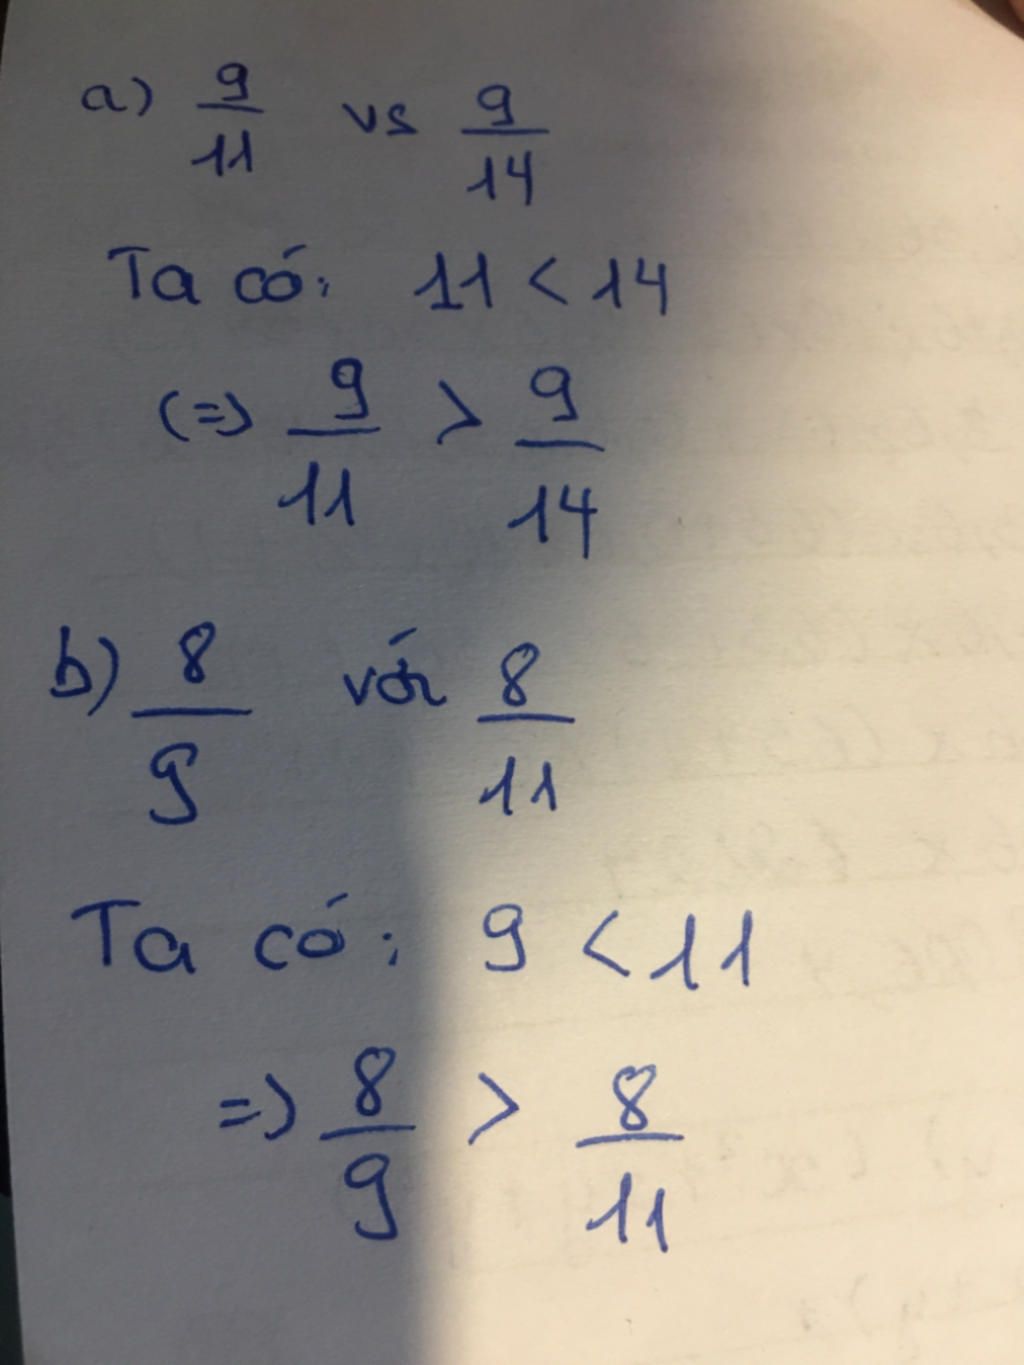 a) 9/11 vs 9/14
Ta có: 11 < 14
(=) 9/11 > 9/14
b) 8/9 với 8/11
Ta có: 9 < 11
=) 8/9 > 8/11